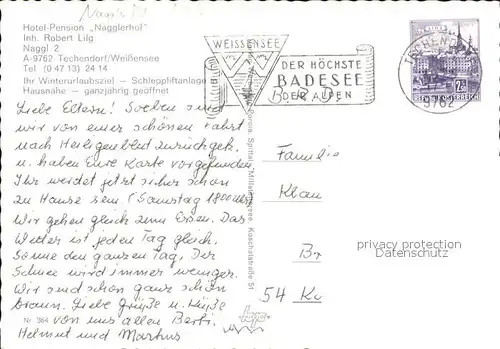 Naggler
Hotel-Pension „Nagglerhof"
Inh. Robert Lilg
Naggl 2
A-9762 Techendorf/Weißensee
Tel (0 47 13) 24 14
Ihr Winterurlaubsziel - Schleppliftanlage
Hausnähe - ganzjährig geöffnet
WEISSENSEE
DER HÖCHSTE
BADESEE
DER ALPEN
9762
REPUBLIK ÖSTERREICH
Liebe Eltern! Soeben sind
wir von einer schönen Fahrt
nach Heiligenblut zurückgek.
u. haben Eure Karte vorgefunden
Ihr werdet jetzt sicher schon
zu Hause sein (Samstag 18 00 Uhr)
Wir gehen gleich zum Essen. Das
Wetter ist jeden Tag gleich.
Sonne den ganzen Tag. Der
Schnee wird immer weniger.
Wir sind schon ganz schön
braun. Liebe Grüße u. Küsse
von uns allen Berti.
Helmut und Markus
Nr. 364
B.R.D.
Familie
Klau
Br
54 Ko
privacy protection
Datenschutz